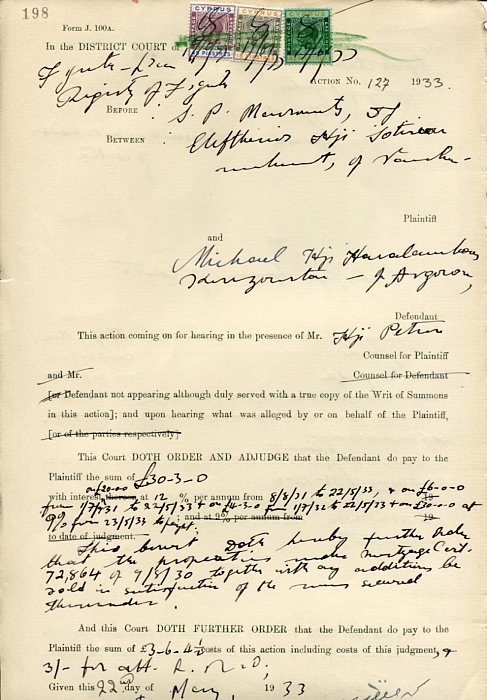 198
Form J. 100A.
CYPRUS CYPRUS CYPRUS
In the DISTRICT COURT of
Registry of
ACTION No. 127 1933.
BEFORE : S. P.
BETWEEN : Eleftherios Hji Sotiriou
merchant, of
Plaintiff
and
Michael Hji Haralambous
of
Defendant
This action coming on for hearing in the presence of Mr. Hji Petrou
Counsel for Plaintiff
and Mr. Counsel for Defendant
[or Defendant not appearing although duly served with a true copy of the Writ of Summons
in this action]; and upon hearing what was alleged by or on behalf of the Plaintiff,
[or of the parties respectively]
This Court DOTH ORDER AND ADJUDGE that the Defendant do pay to the
Plaintiff the sum of £30-3-0
on £20-0-0
with interest thereon at 12 % per annum from 8/8/31 to 22/5/33, & on £6-0-0
from 1/7/31 to 22/5/33 & on £4-3-0 from 1/7/32 to 22/5/33 & on £30-0-0 at
9% from 23/5/33 to and at 9% per annum from 19
to date of judgment.
This Court Doth hereby further Order
that the properties under mortgage Cert.
72,864 of 9/8/30 together with any additions be
sold in satisfaction of the sums secured
thereunder.
And this Court DOTH FURTHER ORDER that the Defendant do pay to the
Plaintiff the sum of £3-6-4½ costs of this action including costs of this judgment, &
3/- for aff.
Given this 22nd day of May 1933